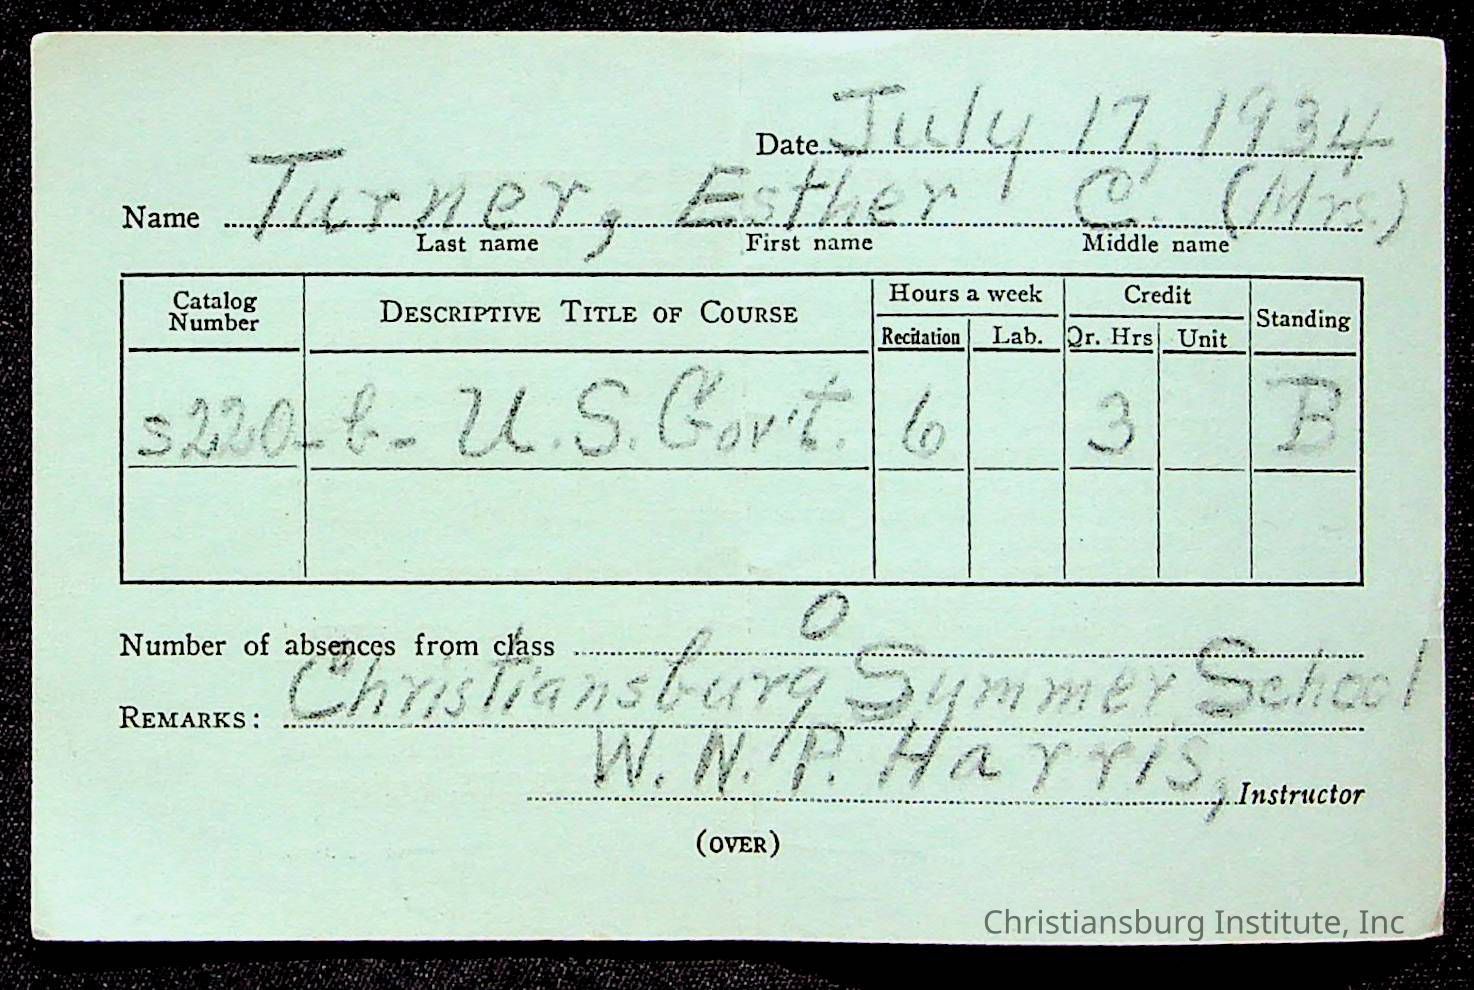 Date July 17, 1934
Name Turner, Esther C. (Mrs.)
Last name First name Middle name
Catalog Number DESCRIPTIVE TITLE OF COURSE Hours a week Credit Standing
Recitation Lab. Qr. Hrs Unit
s220-b- U.S. Gov't. 6 3 B
Number of absences from class 0
REMARKS: Christiansburg Summer School
W. N. P. Harris, Instructor
(OVER)
Christiansburg Institute, Inc